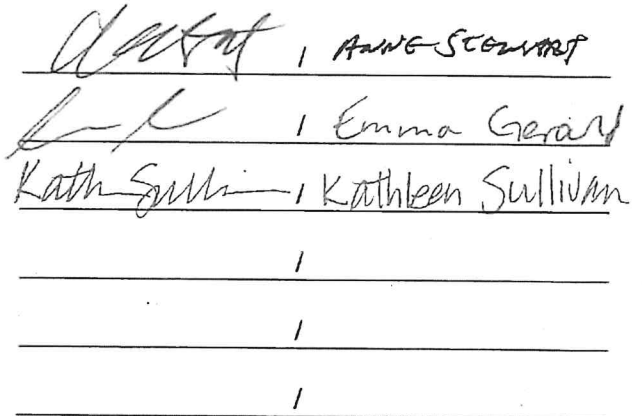 / ANNE STEWART
/ Emma Gerard
Kath Sulli / Kathleen Sullivan
/
/
/